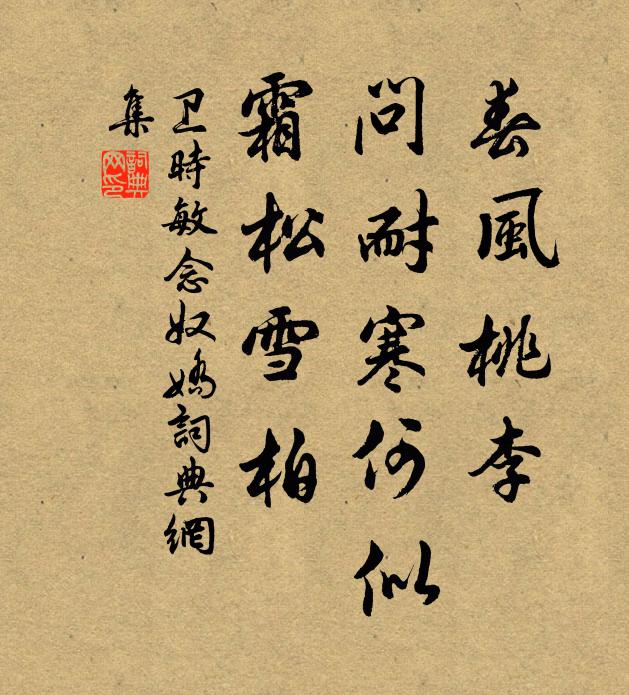 春風桃李
問耐寒何似
霜松雪柏
卫時敏念奴嬌詞典網
集
詞典
网印